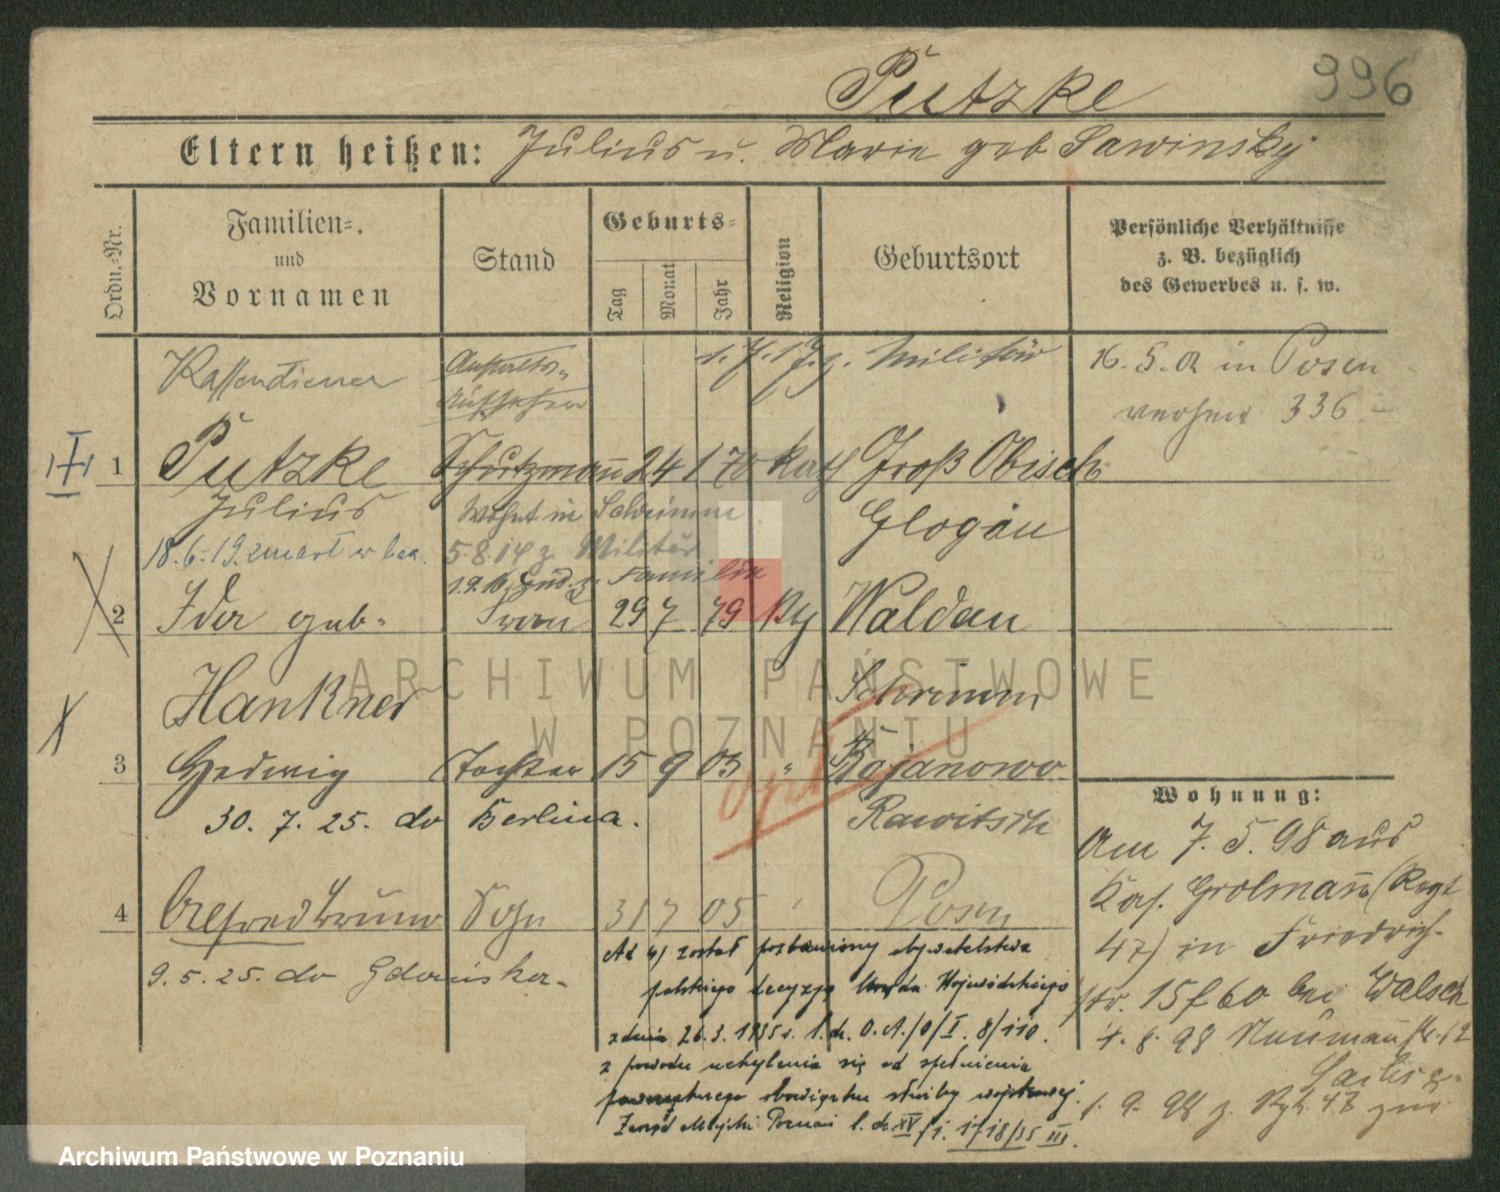 Putzke
996
Eltern heißen: Julius u. Marie geb Sawinsky
Ordn.-Nr.
Familien-
und
Vornamen
Stand
Geburts-
Tag
Monat
Jahr
Religion
Geburtsort
Persönliche Verhältnisse
z. B. bezüglich
des Gewerbes u. s. w.
Kassendiener
1. 7. 17 z. Militär
16. 5. 02 in Posen
336.-
1 Putzke Schutzmann 24 1 70 kath Groß Obisch
Julius wohnt in Schrimm Glogau
18.6.19. zmarł w
5.8.14 z. Militär
z. Familie
2 Ida geb. Frau 29 7 79 Waldau
Hankner Schrimm
3 Hedwig Tochter 15 9 03 " Bojanowo
30. 7. 25. do Berlina. Rawitsch
opt
4 Alfred Bruno Sohn 31 7 05 " Posen
9. 5. 25. do Gdańska.
Ad 4) został pozbawiony obywatelstwa
polskiego decyzją Urzędu Wojewódzkiego
z dnia 26.3.1935 r. l. dz. O.A./O/I. 8/110.
z powodu uchylenia się od spełnienia
powszechnego obowiązku służby wojskowej.
Zarząd Miejski Poznań l. dz. XV/1. 1718/35 III.
Wohnung:
Am 7. 5. 98 aus
Kas. Grolmann (Regt
47) in Friedrich-
str. 15 bei Walsch
4. 8. 98 Naumannstr. 12
1. 9. 98 z. 47
ARCHIWUM PAŃSTWOWE
W POZNANIU
Archiwum Państwowe w Poznaniu